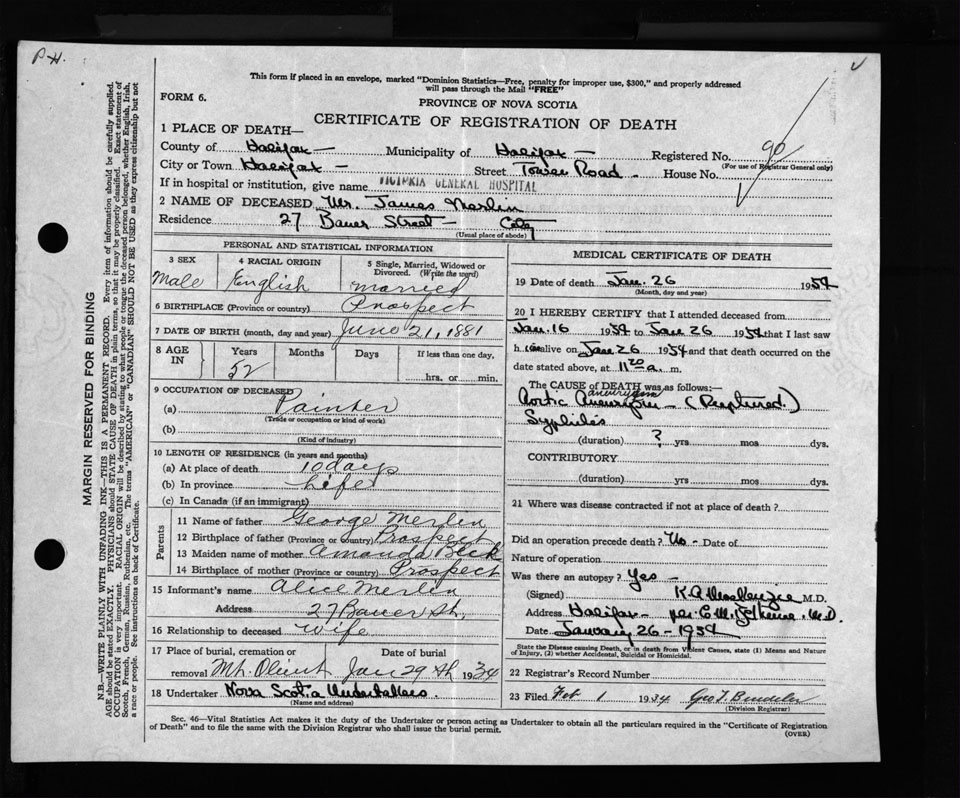 P.H.
This form if placed in an envelope, marked "Dominion Statistics—Free, penalty for improper use, $300," and properly addressed
will pass through the Mail "FREE"
FORM 6.
PROVINCE OF NOVA SCOTIA
CERTIFICATE OF REGISTRATION OF DEATH
1 PLACE OF DEATH—
County of Halifax — Municipality of Halifax — Registered No. 90
(For use of Registrar General only)
City or Town Halifax — Street Tower Road — House No.
If in hospital or institution, give name VICTORIA GENERAL HOSPITAL
2 NAME OF DECEASED Mr. James Merlin
Residence 27 Bauer Street — City
(Usual place of abode)
PERSONAL AND STATISTICAL INFORMATION
3 SEX 4 RACIAL ORIGIN 5 Single, Married, Widowed or
Divorced. (Write the word)
Male English married
6 BIRTHPLACE (Province or country) Prospect
7 DATE OF BIRTH (month, day and year) June 21, 1881
8 AGE IN Years Months Days If less than one day,
52 hrs. or min.
9 OCCUPATION OF DECEASED
(a) Painter
(Trade or occupation or kind of work)
(b)
(Kind of industry)
10 LENGTH OF RESIDENCE (in years and months)
(a) At place of death 10 days
(b) In province Life
(c) In Canada (if an immigrant)
Parents
11 Name of father George Merlin
12 Birthplace of father (Province or country) Prospect
13 Maiden name of mother Amanda Beck
14 Birthplace of mother (Province or country) Prospect
15 Informant's name Alice Merlin
Address 27 Bauer St.
16 Relationship to deceased wife
17 Place of burial, cremation or Date of burial
removal Mt. Olivet Jan 29th 1934
18 Undertaker Nova Scotia Undertakers
(Name and address)
MEDICAL CERTIFICATE OF DEATH
19 Date of death Jan. 26 1934
(Month, day and year)
20 I HEREBY CERTIFY that I attended deceased from
Jan. 16 1934 to Jan 26 1934 that I last saw
h im alive on Jan 26 1934 and that death occurred on the
date stated above, at 11 20 a. m.
The CAUSE OF DEATH was as follows:—
aneurysm
Aortic Aneurysm — (Ruptured.)
Syphilis
(duration) ? yrs mos dys.
CONTRIBUTORY
(duration) yrs. mos. dys.
21 Where was disease contracted if not at place of death?
Did an operation precede death? No - Date of
Nature of operation
Was there an autopsy? Yes —
(Signed) K.A. MacKenzie M.D.
Address Halifax — per M.D.
Date January 26 - 1934
State the Disease causing Death, or in death from Violent Causes, state (1) Means and Nature
of Injury, (2) whether Accidental, Suicidal or Homicidal.
22 Registrar's Record Number
23 Filed Feb 1 1934 Geo T.
(Division Registrar)
Sec. 46—Vital Statistics Act makes it the duty of the Undertaker or person acting as Undertaker to obtain all the particulars required in the "Certificate of Registration
of Death" and to file the same with the Division Registrar who shall issue the burial permit.
(OVER)
MARGIN RESERVED FOR BINDING
N.B.—WRITE PLAINLY WITH UNFADING INK—THIS IS A PERMANENT RECORD. Every item of information should be carefully supplied.
AGE should be stated EXACTLY. PHYSICIANS should STATE CAUSE OF DEATH in plain terms, so that it may be properly classified. Exact statement of
OCCUPATION is very important. RACIAL ORIGIN will be described by stating to what people or tongue the deceased person belonged, whether English, Irish,
Scotch, French, German, Russian, Ruthenian, etc. The terms "AMERICAN" or "CANADIAN" SHOULD NOT BE USED as they express citizenship but not
a race or people. See instructions on back of Certificate.